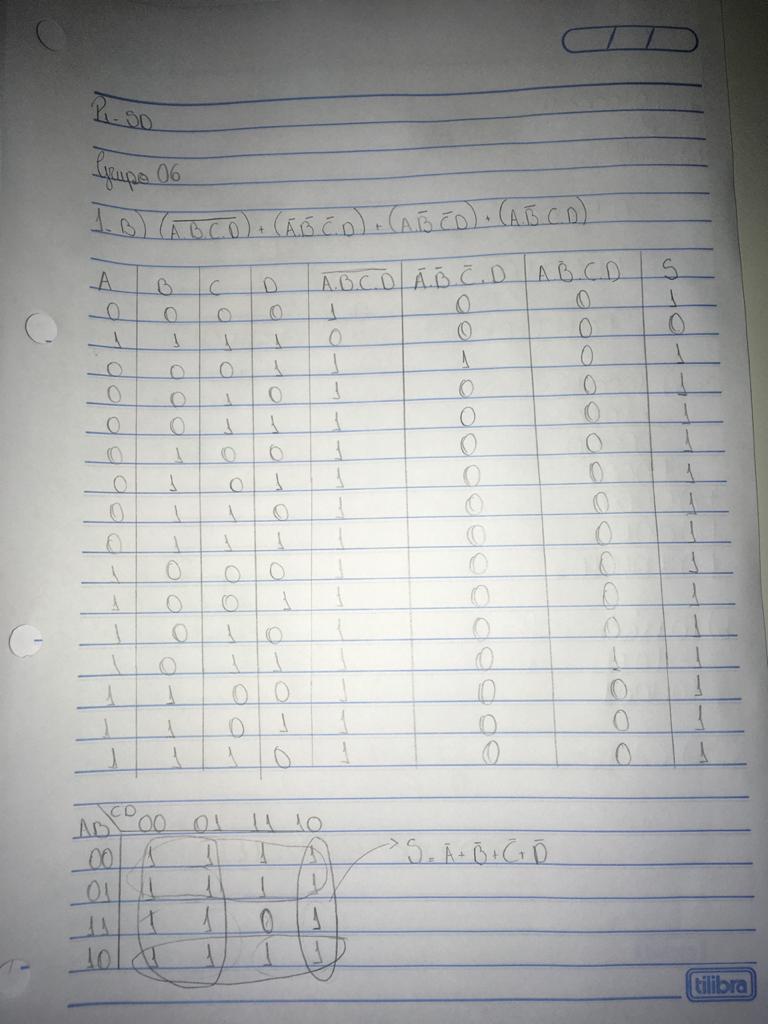 P1-SD
Grupo 06
1-B) (A̅.̅B̅.̅C̅.̅D̅) + (A̅.B̅.C̅.D) + (A.B̅.C̅.D) + (A.B̅.C.D)
A B C D A̅.̅B̅.̅C̅.̅D̅ A̅.B̅.C̅.D A.B̅.C.D S
0 0 0 0 1 0 0 1
1 1 1 1 0 0 0 0
0 0 0 1 1 1 0 1
0 0 1 0 1 0 0 1
0 0 1 1 1 0 0 1
0 1 0 0 1 0 0 1
0 1 0 1 1 0 0 1
0 1 1 0 1 0 0 1
0 1 1 1 1 0 0 1
1 0 0 0 1 0 0 1
1 0 0 1 1 0 0 1
1 0 1 0 1 0 0 1
1 0 1 1 1 0 1 1
1 1 0 0 1 0 0 1
1 1 0 1 1 0 0 1
1 1 1 0 1 0 0 1
AB\CD 00 01 11 10
00 1 1 1 1 S = A̅ + B̅ + C̅ + D̅
01 1 1 1 1
11 1 1 0 1
10 1 1 1 1
tilibra